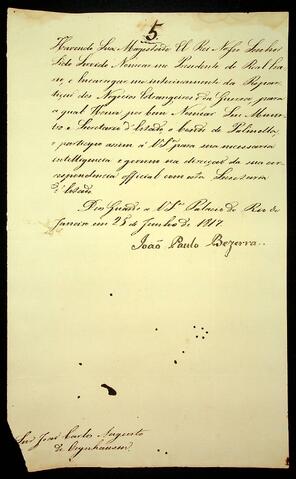 5
Havendo Sua Magestade El Rei Nosso Senhor
Sido Servido Nomear me Presidente do Real Era
rio, e Encarregar me interinamente da Repar
tição dos Negocios Estrangeiros e da Guerra, para
a qual Houve por bem Nomear Seu Minis
tro e Secretario d'Estado, o Conde de Palmella;
o participo assim a VS.ª para sua necessaria
intelligencia e governo na direcção da sua cor
respondencia official com esta Secretaria
d'Estado.
Deos Guarde a VS.ª Palacio do Rio de
Janeiro em 28 de Junho de 1817.
João Paulo Bezerra.
Snr. José Carlos Augusto
de Oeynhausen